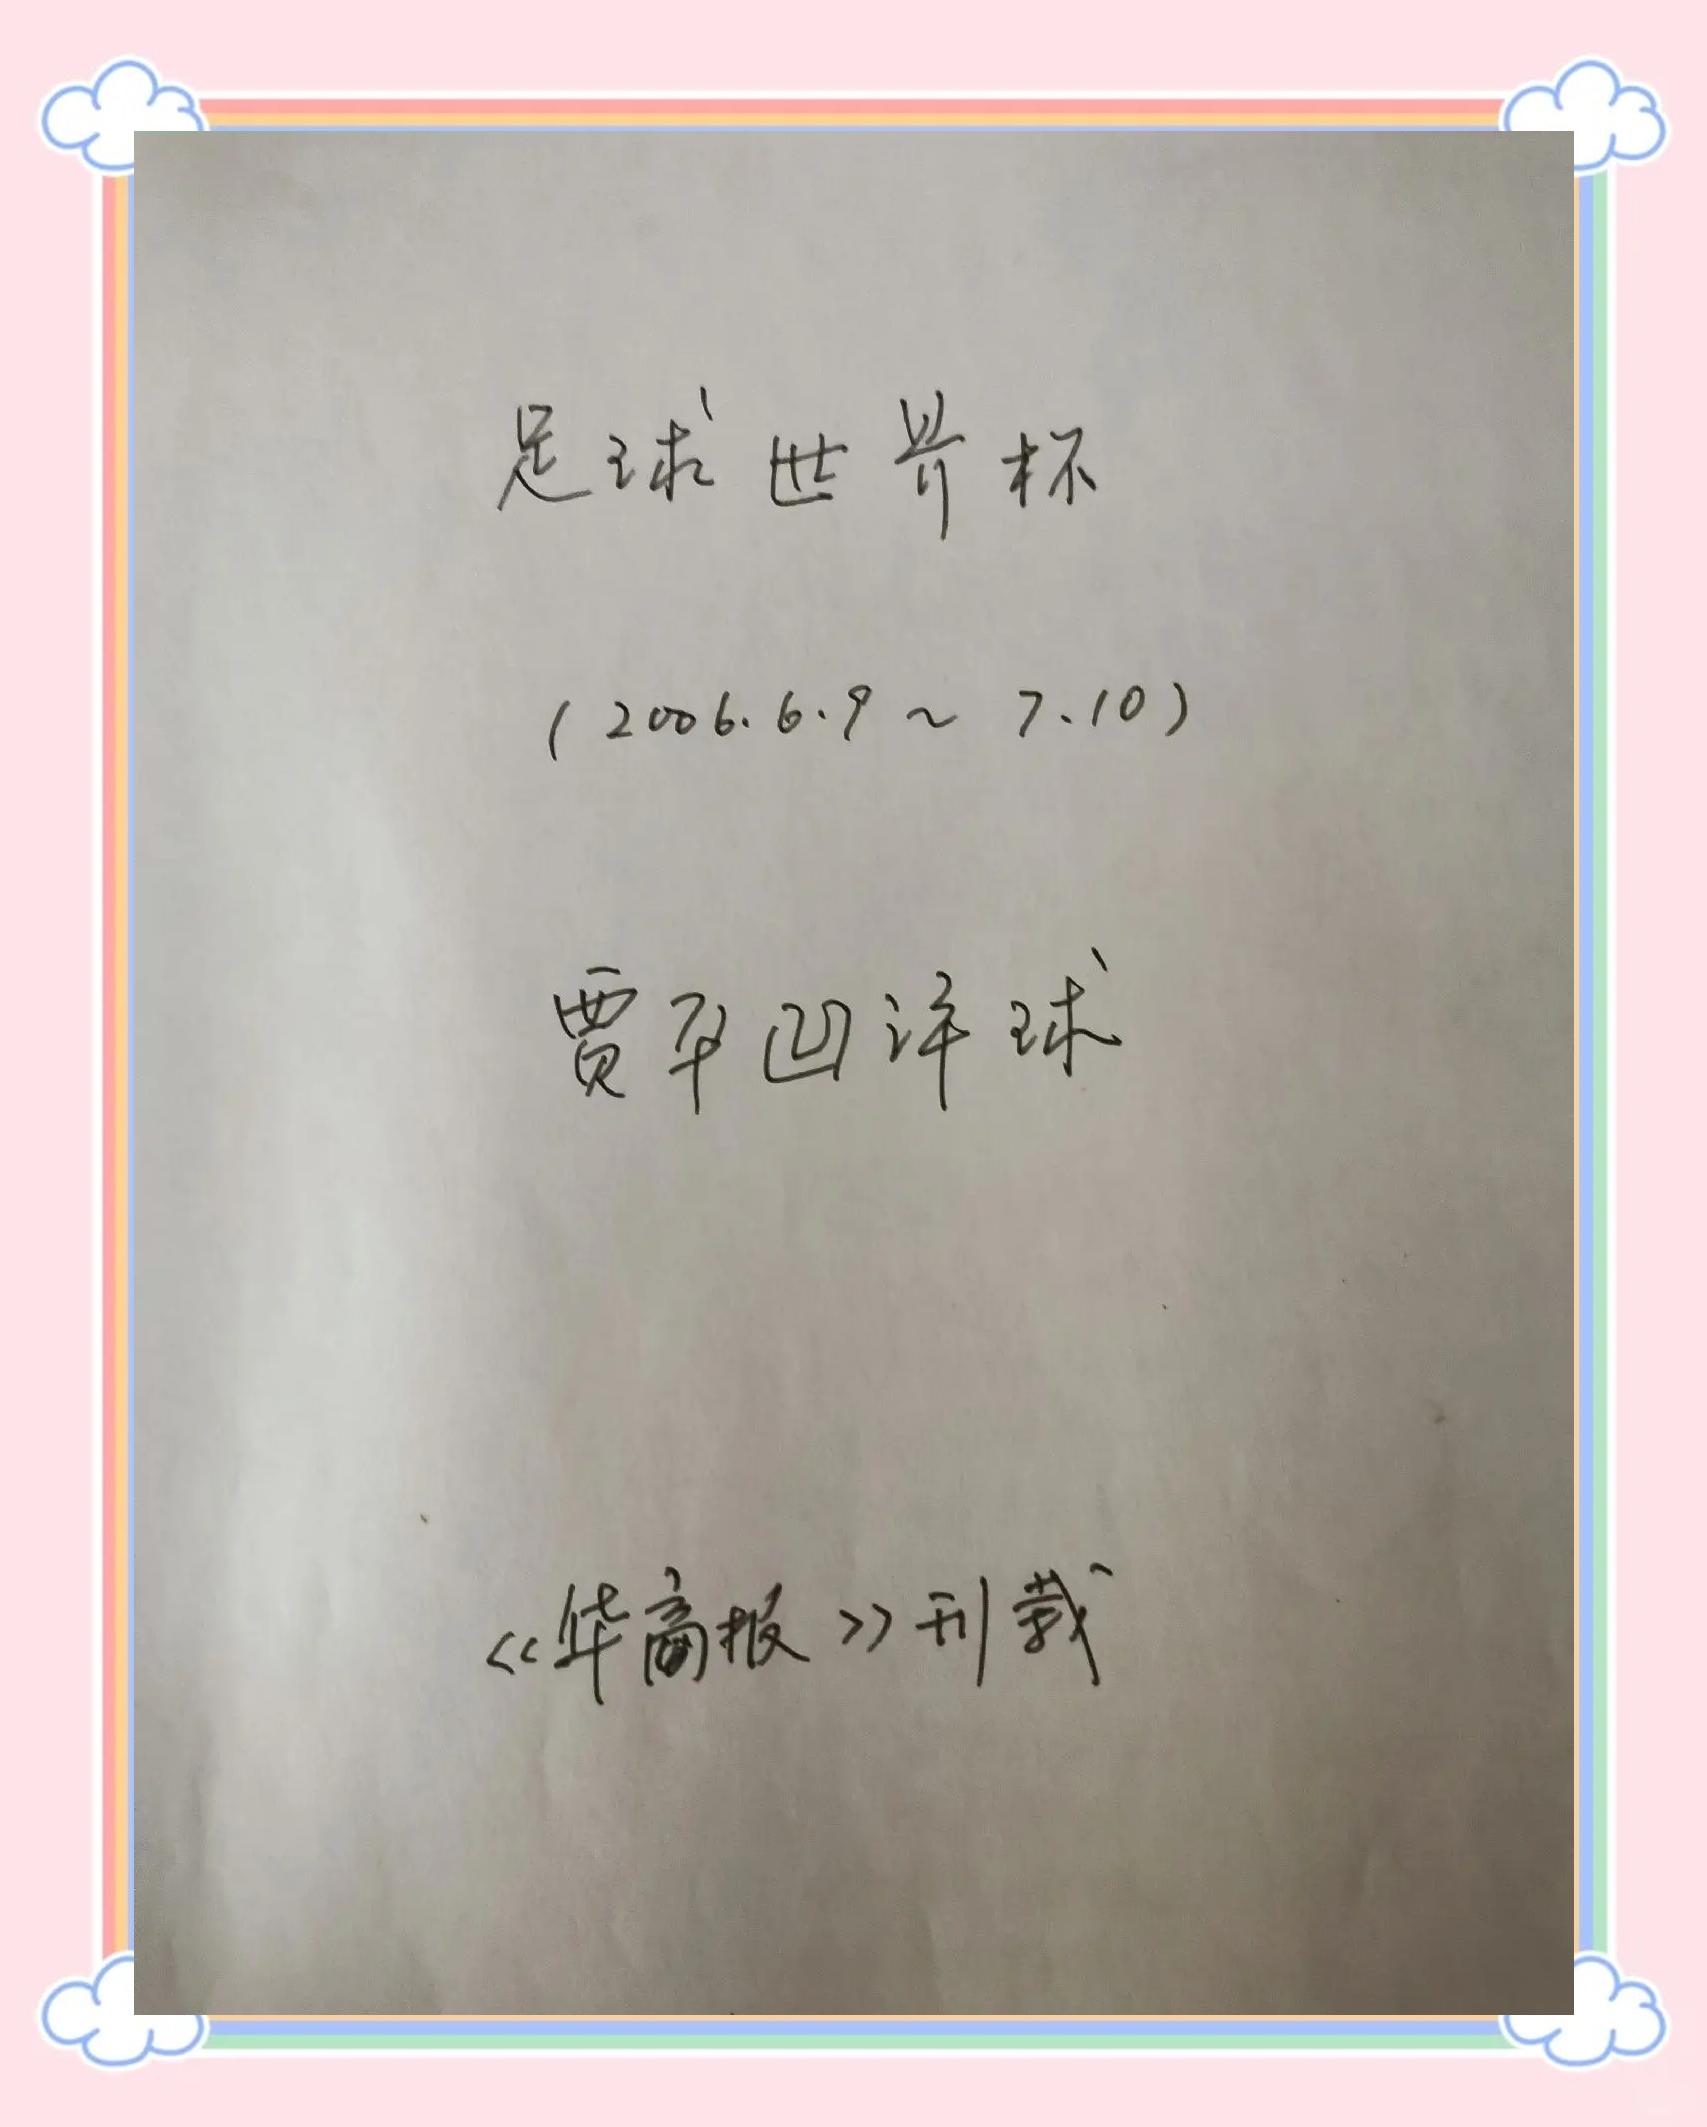 足球世界杯
(2006.6.9～7.10)
贾平凹评球
《华商报》刊载